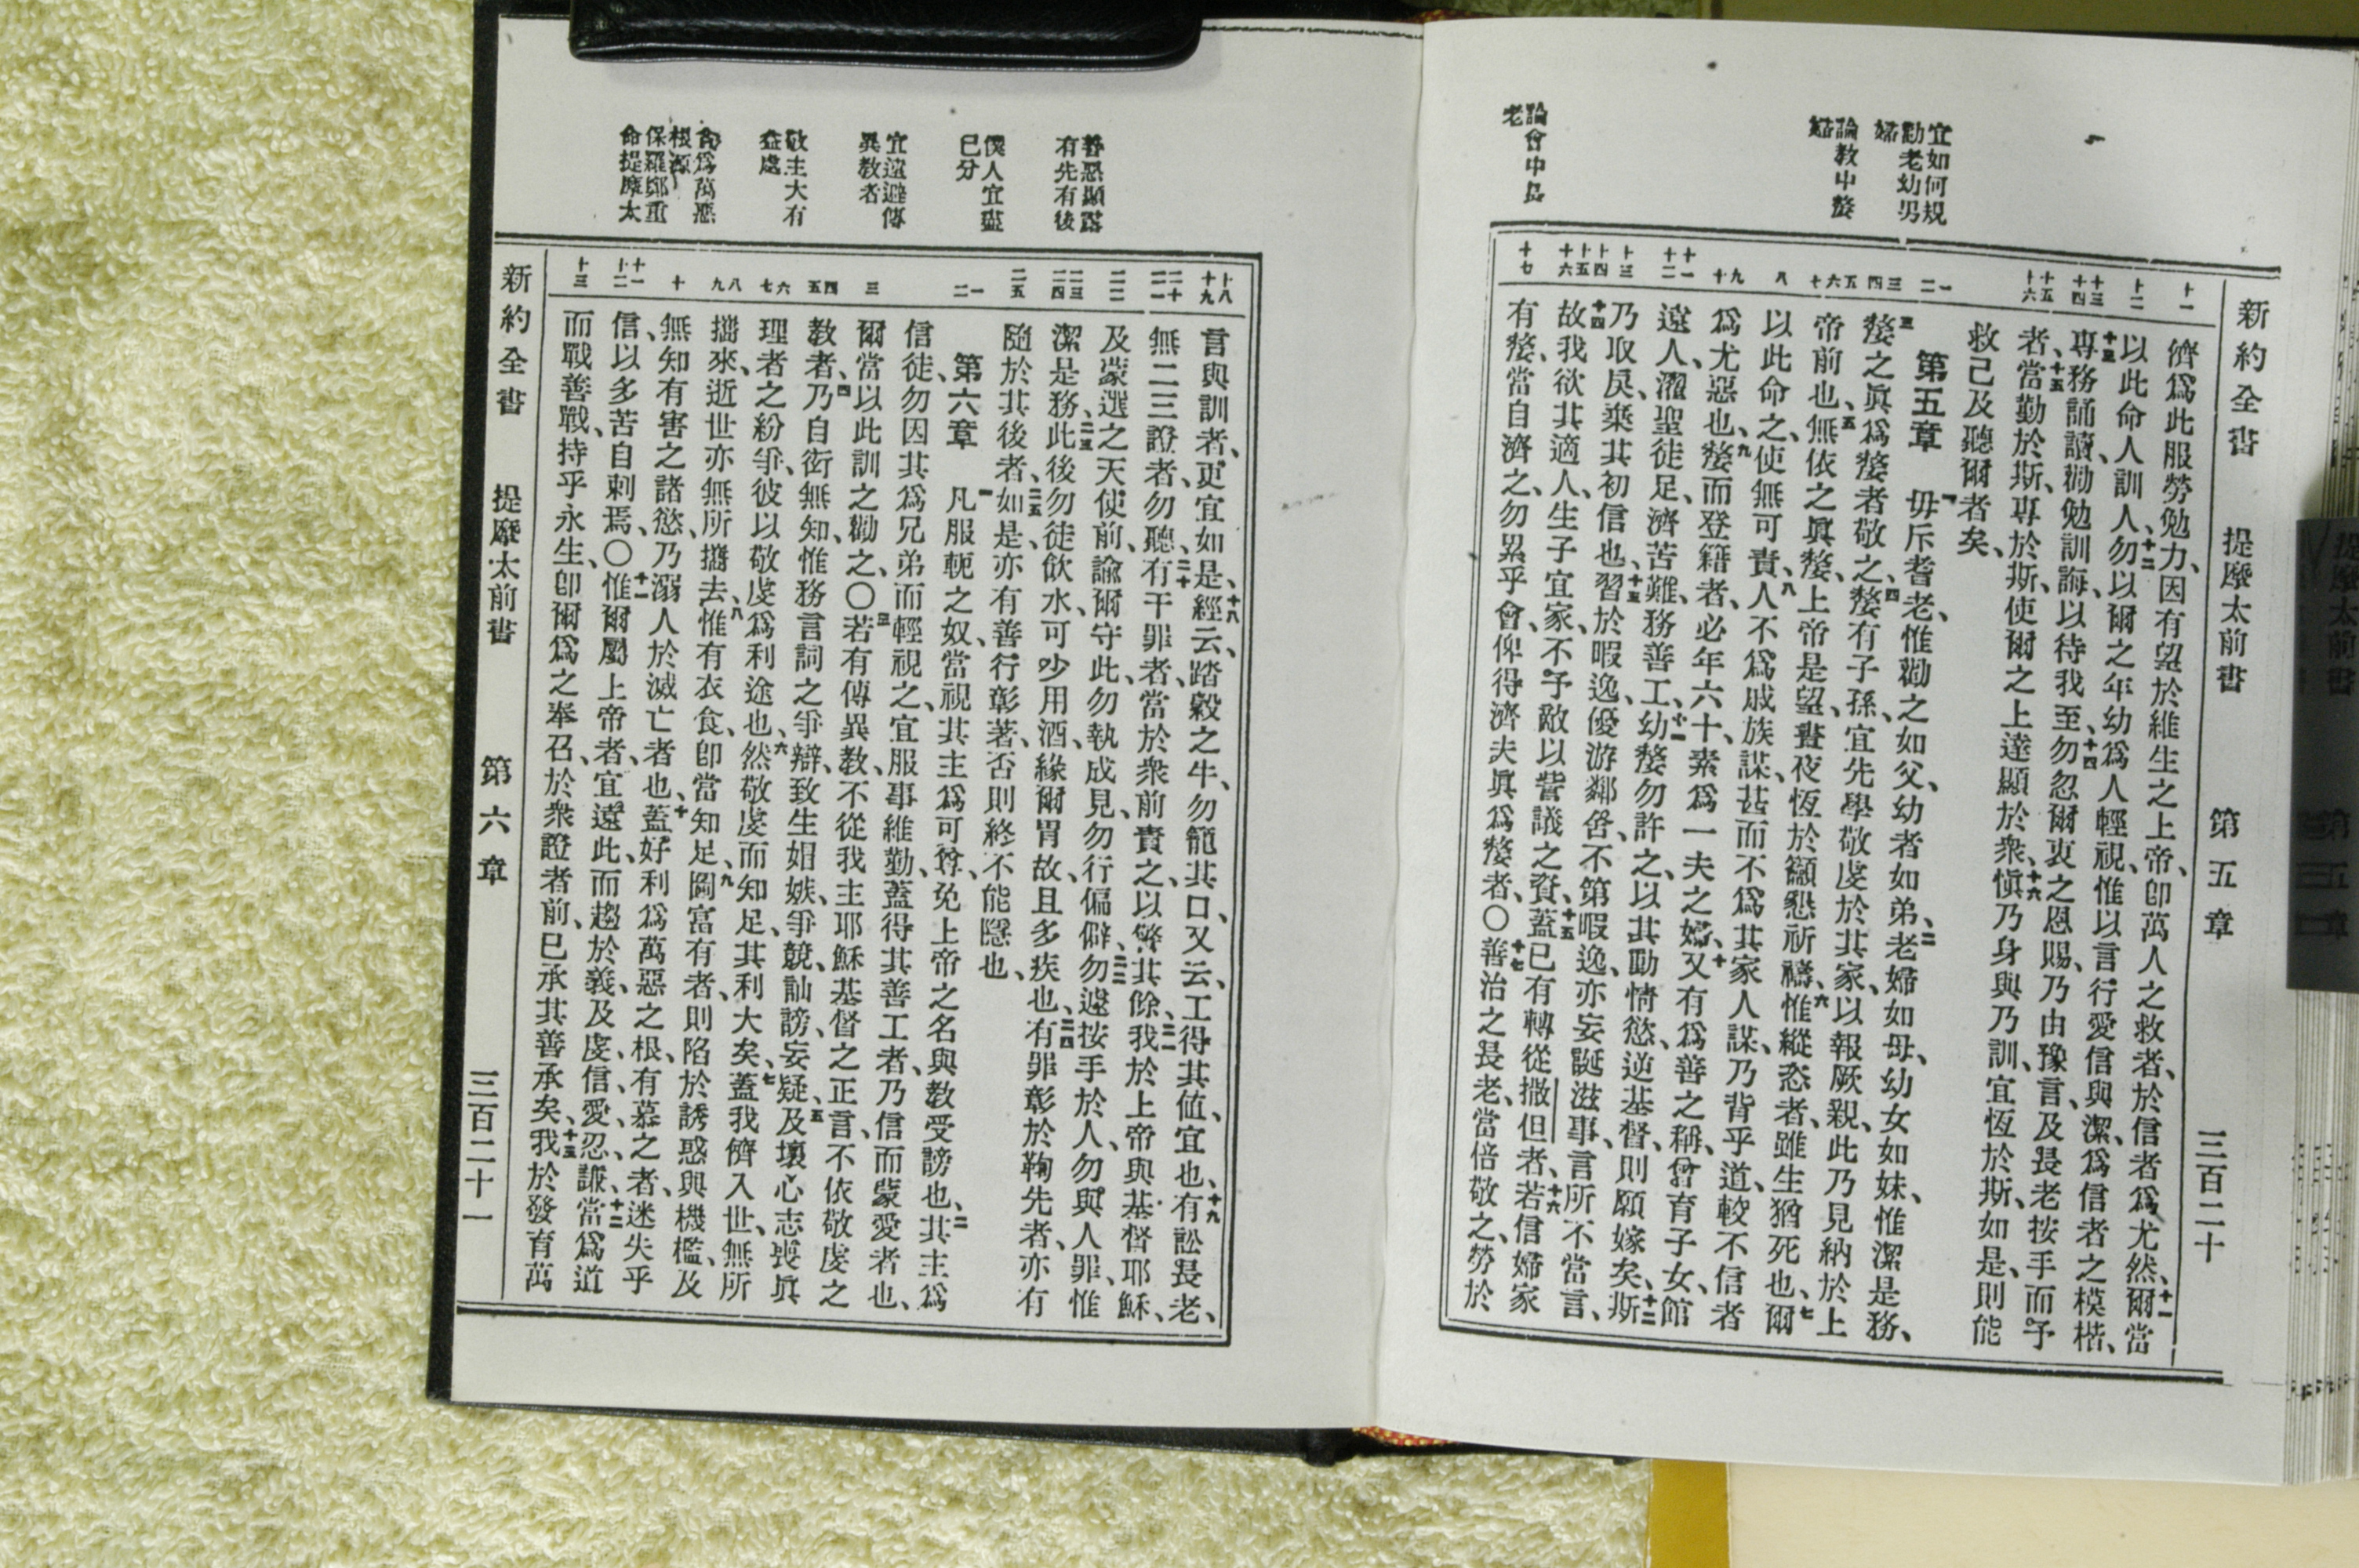 新約全書 提摩太前書 第五章 三百二十
宜如何規
勸老幼男
婦
論教中嫠
婦
論會中長
老
十一
十二
十三 十四
十五 十六
一 二
三 四
五 六 七
八
九 十
十一 十二
十三
十四 十五 十六
十七
儕爲此服勞勉力、因有望於維生之上帝、卽萬人之救者、於信者爲尤然、十一爾當
以此命人訓人、十二勿以爾之年幼爲人輕視、惟以言行愛信與潔、爲信者之模楷、
十三專務誦讀、勸勉訓誨、以待我至、十四勿忽爾衷之恩賜、乃由豫言、及長老按手而予
者、十五當勤於斯、專於斯、使爾之上達顯於衆、十六愼乃身與乃訓、宜恆於斯、如是、則能
救己及聽爾者矣、
第五章 一毋斥耆老、惟勸之如父、幼者如弟、二老婦如母、幼女如妹、惟潔是務、
三嫠之眞爲嫠者敬之、四嫠有子孫、宜先學敬虔於其家、以報厥親、此乃見納於上
帝前也、五無依之眞嫠、上帝是望、晝夜恆於籲懇祈禱、六惟縱恣者、雖生猶死也、七爾
以此命之、使無可責、八人不爲戚族謀、甚而不爲其家人謀、乃背乎道、較不信者
爲尤惡也、九嫠而登籍者、必年六十、素爲一夫之婦、十又有爲善之稱、曾育子女、館
遠人、濯聖徒足、濟苦難、務善工、十一幼嫠勿許之、以其動情慾、逆基督、則願嫁矣、十二斯
乃取戾、棄其初信也、十三習於暇逸、優游鄰舍、不第暇逸、亦妄誕滋事、言所不當言、
十四故我欲其適人、生子宜家、不予敵以訾議之資、十五蓋已有轉從撒但者、十六若信婦家
有嫠、當自濟之、勿累乎會、俾得濟夫眞爲嫠者、〇十七善治之長老、當倍敬之、勞於
善惡顯露
有先有後
僕人宜盡
已分
宜遠避傳
異教者
敬主大有
益處
貪爲萬惡
根源
保羅鄭重
命提摩太
十八 十九
二十 二一
二二
二三 二四
二五
一 二
三
四 五
六 七
八 九
十
十一 十二
十三
言與訓者、更宜如是、十八經云、踏穀之牛、勿籠其口、又云、工得其値、宜也、十九有訟長老、
無二三證者、勿聽、二十有干罪者、當於衆前責之、以警其餘、二一我於上帝與基督耶穌、
及蒙選之天使前、諭爾守此、勿執成見、勿行偏僻、二二勿遽按手於人、勿與人罪、惟
潔是務、二三此後勿徒飲水、可少用酒、緣爾胃故、且多疾也、二四有罪彰於鞫先者、亦有
隨於其後者、二五如是、亦有善行彰著、否則終不能隱也、
第六章 一凡服軛之奴、當視其主爲可尊、免上帝之名與教受謗也、二其主爲
信徒、勿因其爲兄弟而輕視之、宜服事維勤、蓋得其善工者、乃信而蒙愛者也、
爾當以此訓之勸之、〇三若有傳異教、不從我主耶穌基督之正言、不依敬虔之
教者、四乃自衒無知、惟務言詞之爭辯、致生媢嫉、爭競、訕謗、妄疑、五及壞心志喪眞
理者之紛爭、彼以敬虔爲利途也、六然敬虔而知足、其利大矣、七蓋我儕入世、無所
攜來、逝世亦無所攜去、八惟有衣食、卽當知足、九圖富有者、則陷於誘惑與機檻、及
無知有害之諸慾、乃溺人於滅亡者也、十蓋好利爲萬惡之根、有慕之者、迷失乎
信、以多苦自刺焉、〇十一惟爾屬上帝者、宜遠此、而趨於義、及虔、信、愛、忍、謙、十二當爲道
而戰善戰、持乎永生、卽爾爲之奉召、於衆證者前、已承其善承矣、十三我於發育萬
新約全書 提摩太前書 第六章 三百二十一